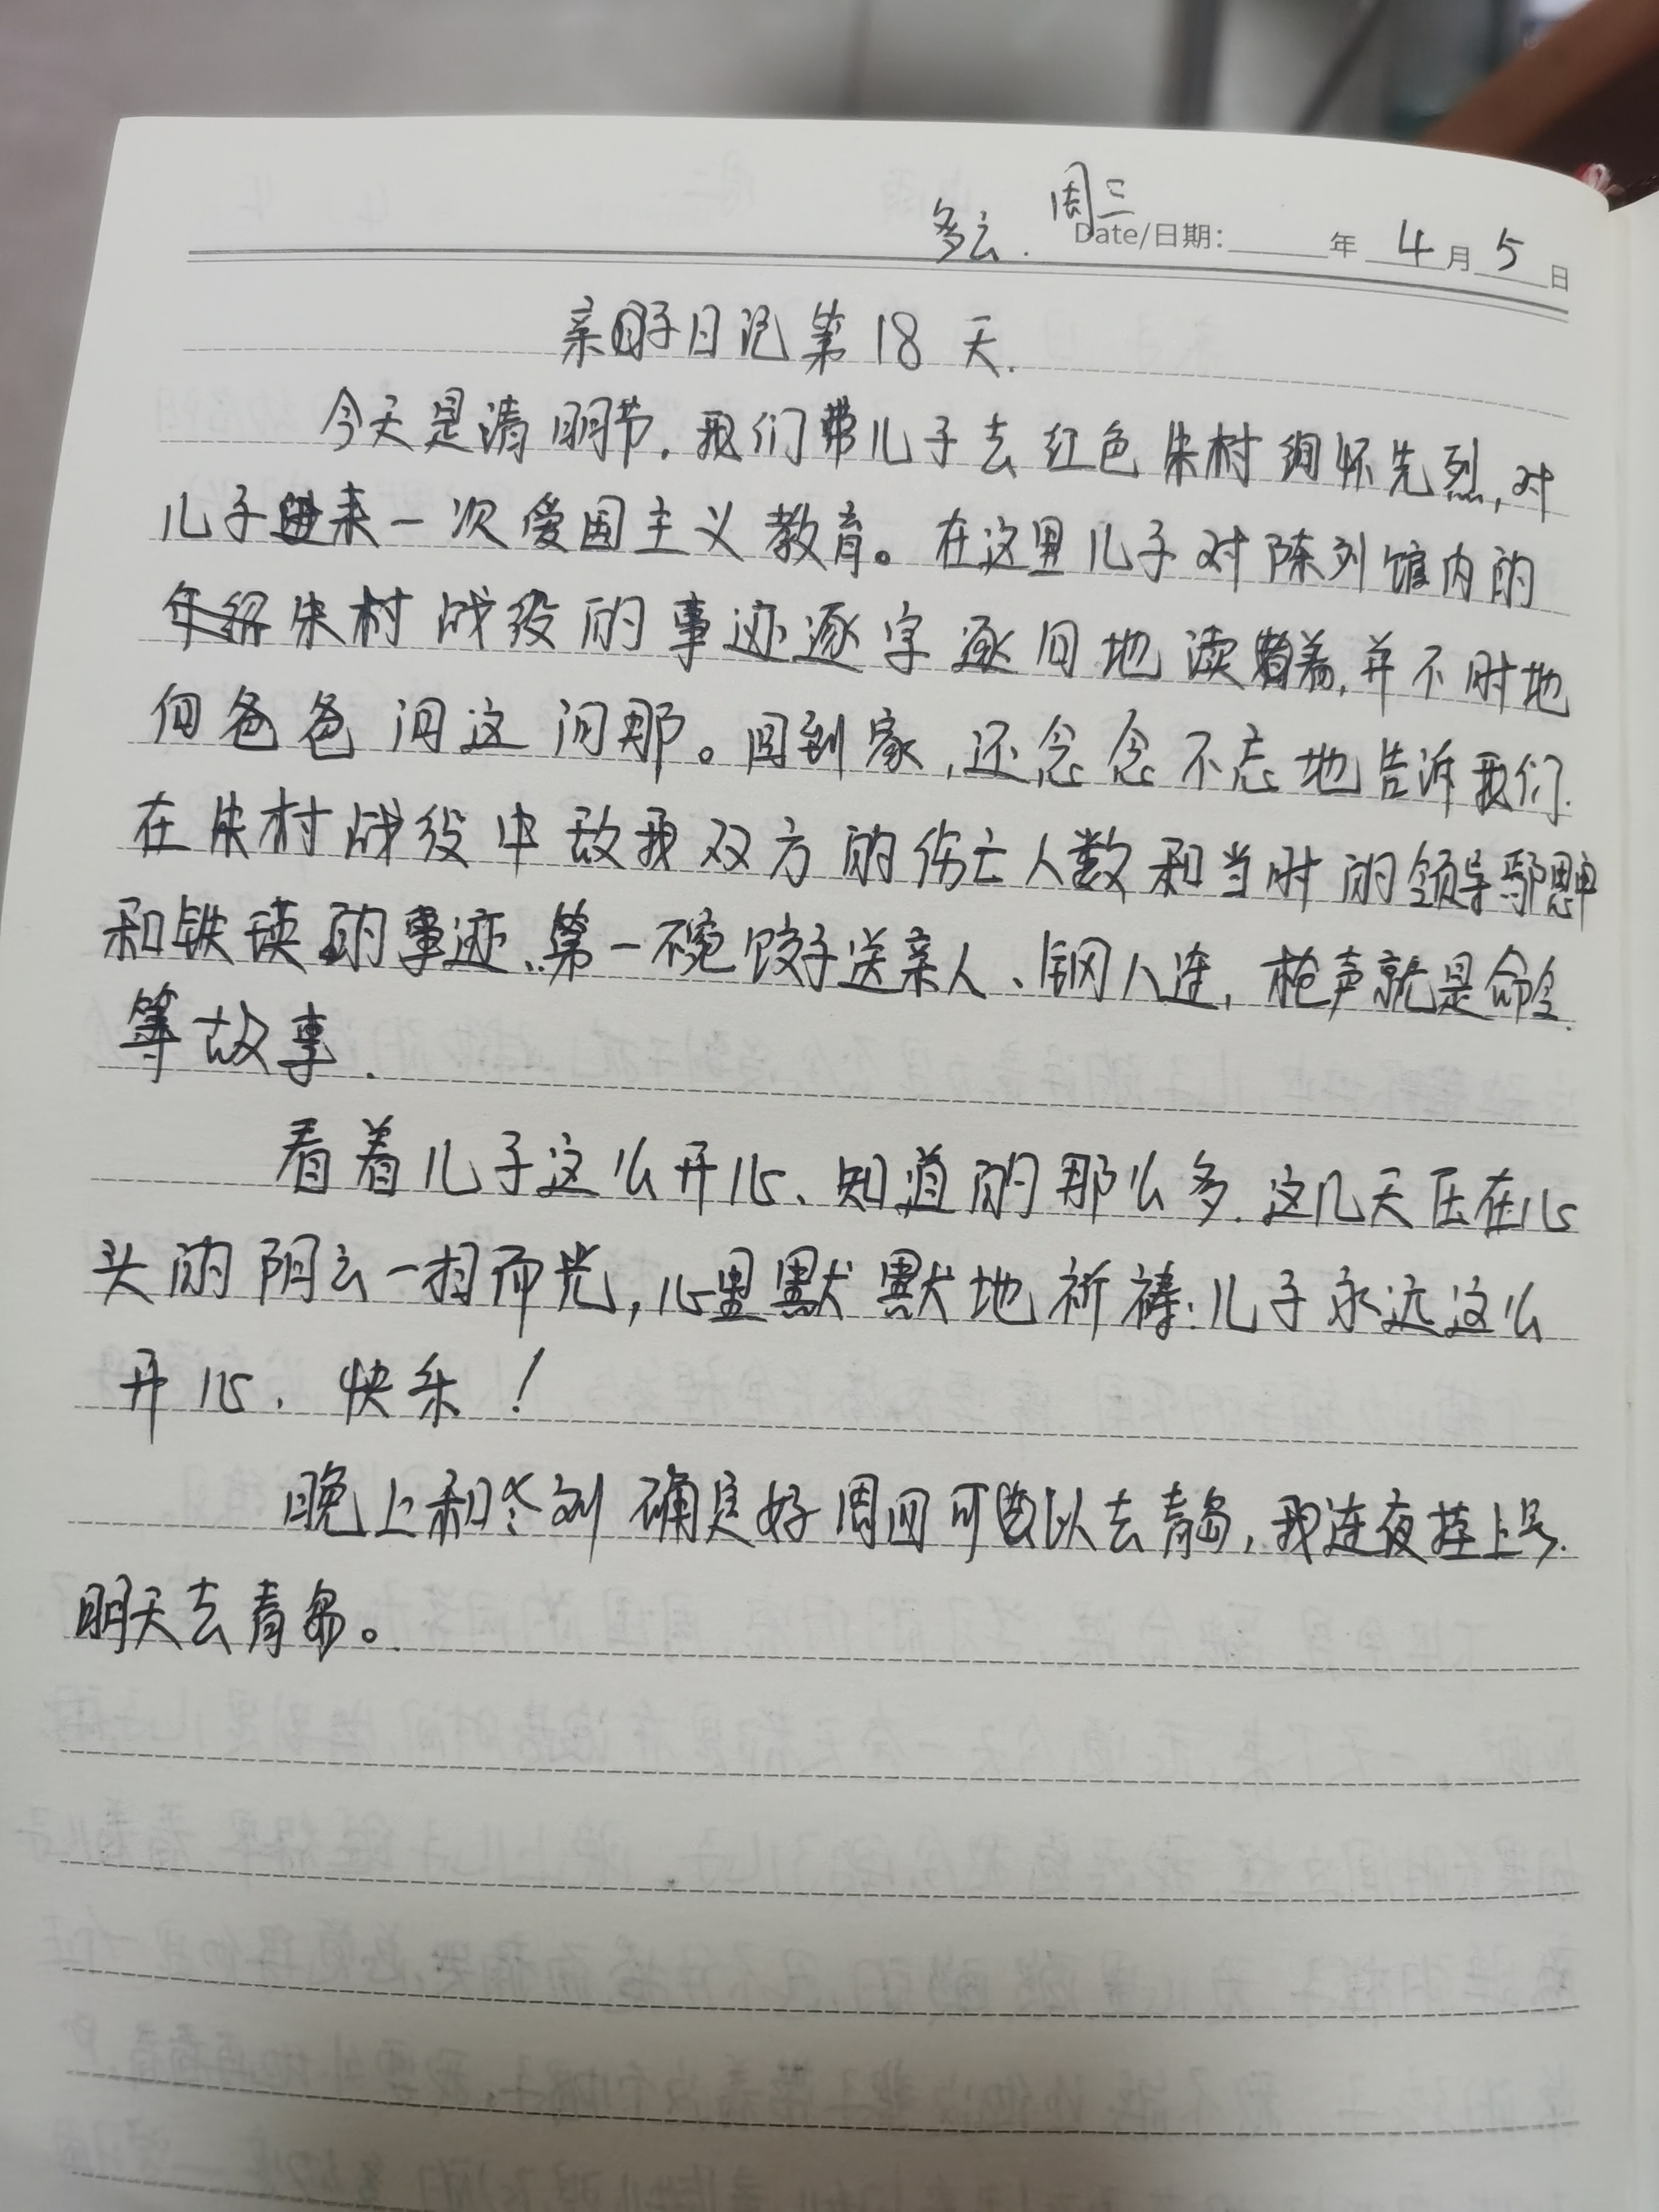 周三
多云. Date/日期: 年 4 月 5 日
亲子日记第 18 天.
今天是清明节,我们带儿子去红色朱村缅怀先烈,对
儿子进来一次爱国主义教育。在这里儿子对陈列馆内的
朱村战役的事迹逐字逐句地读着,并不时地
向爸爸问这问那。回到家,还念念不忘地告诉我们.
在朱村战役中敌我双方的伤亡人数和当时的领导鄢思甲
和铁瑛的事迹、第一碗饺子送亲人、钢八连,枪声就是命令.
等故事.
看着儿子这么开心、知道的那么多.这几天压在心
头的阴云一扫而光,心里默默地祈祷:儿子永远这么
开心.快乐!
晚上和 确定好周四可以去青岛,我连夜挂上号.
明天去青岛。